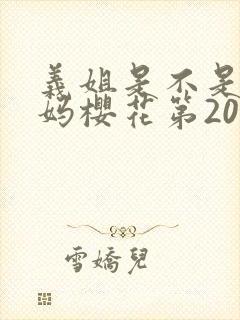 義姐是不是
妈櫻花第20
雪嬌兒